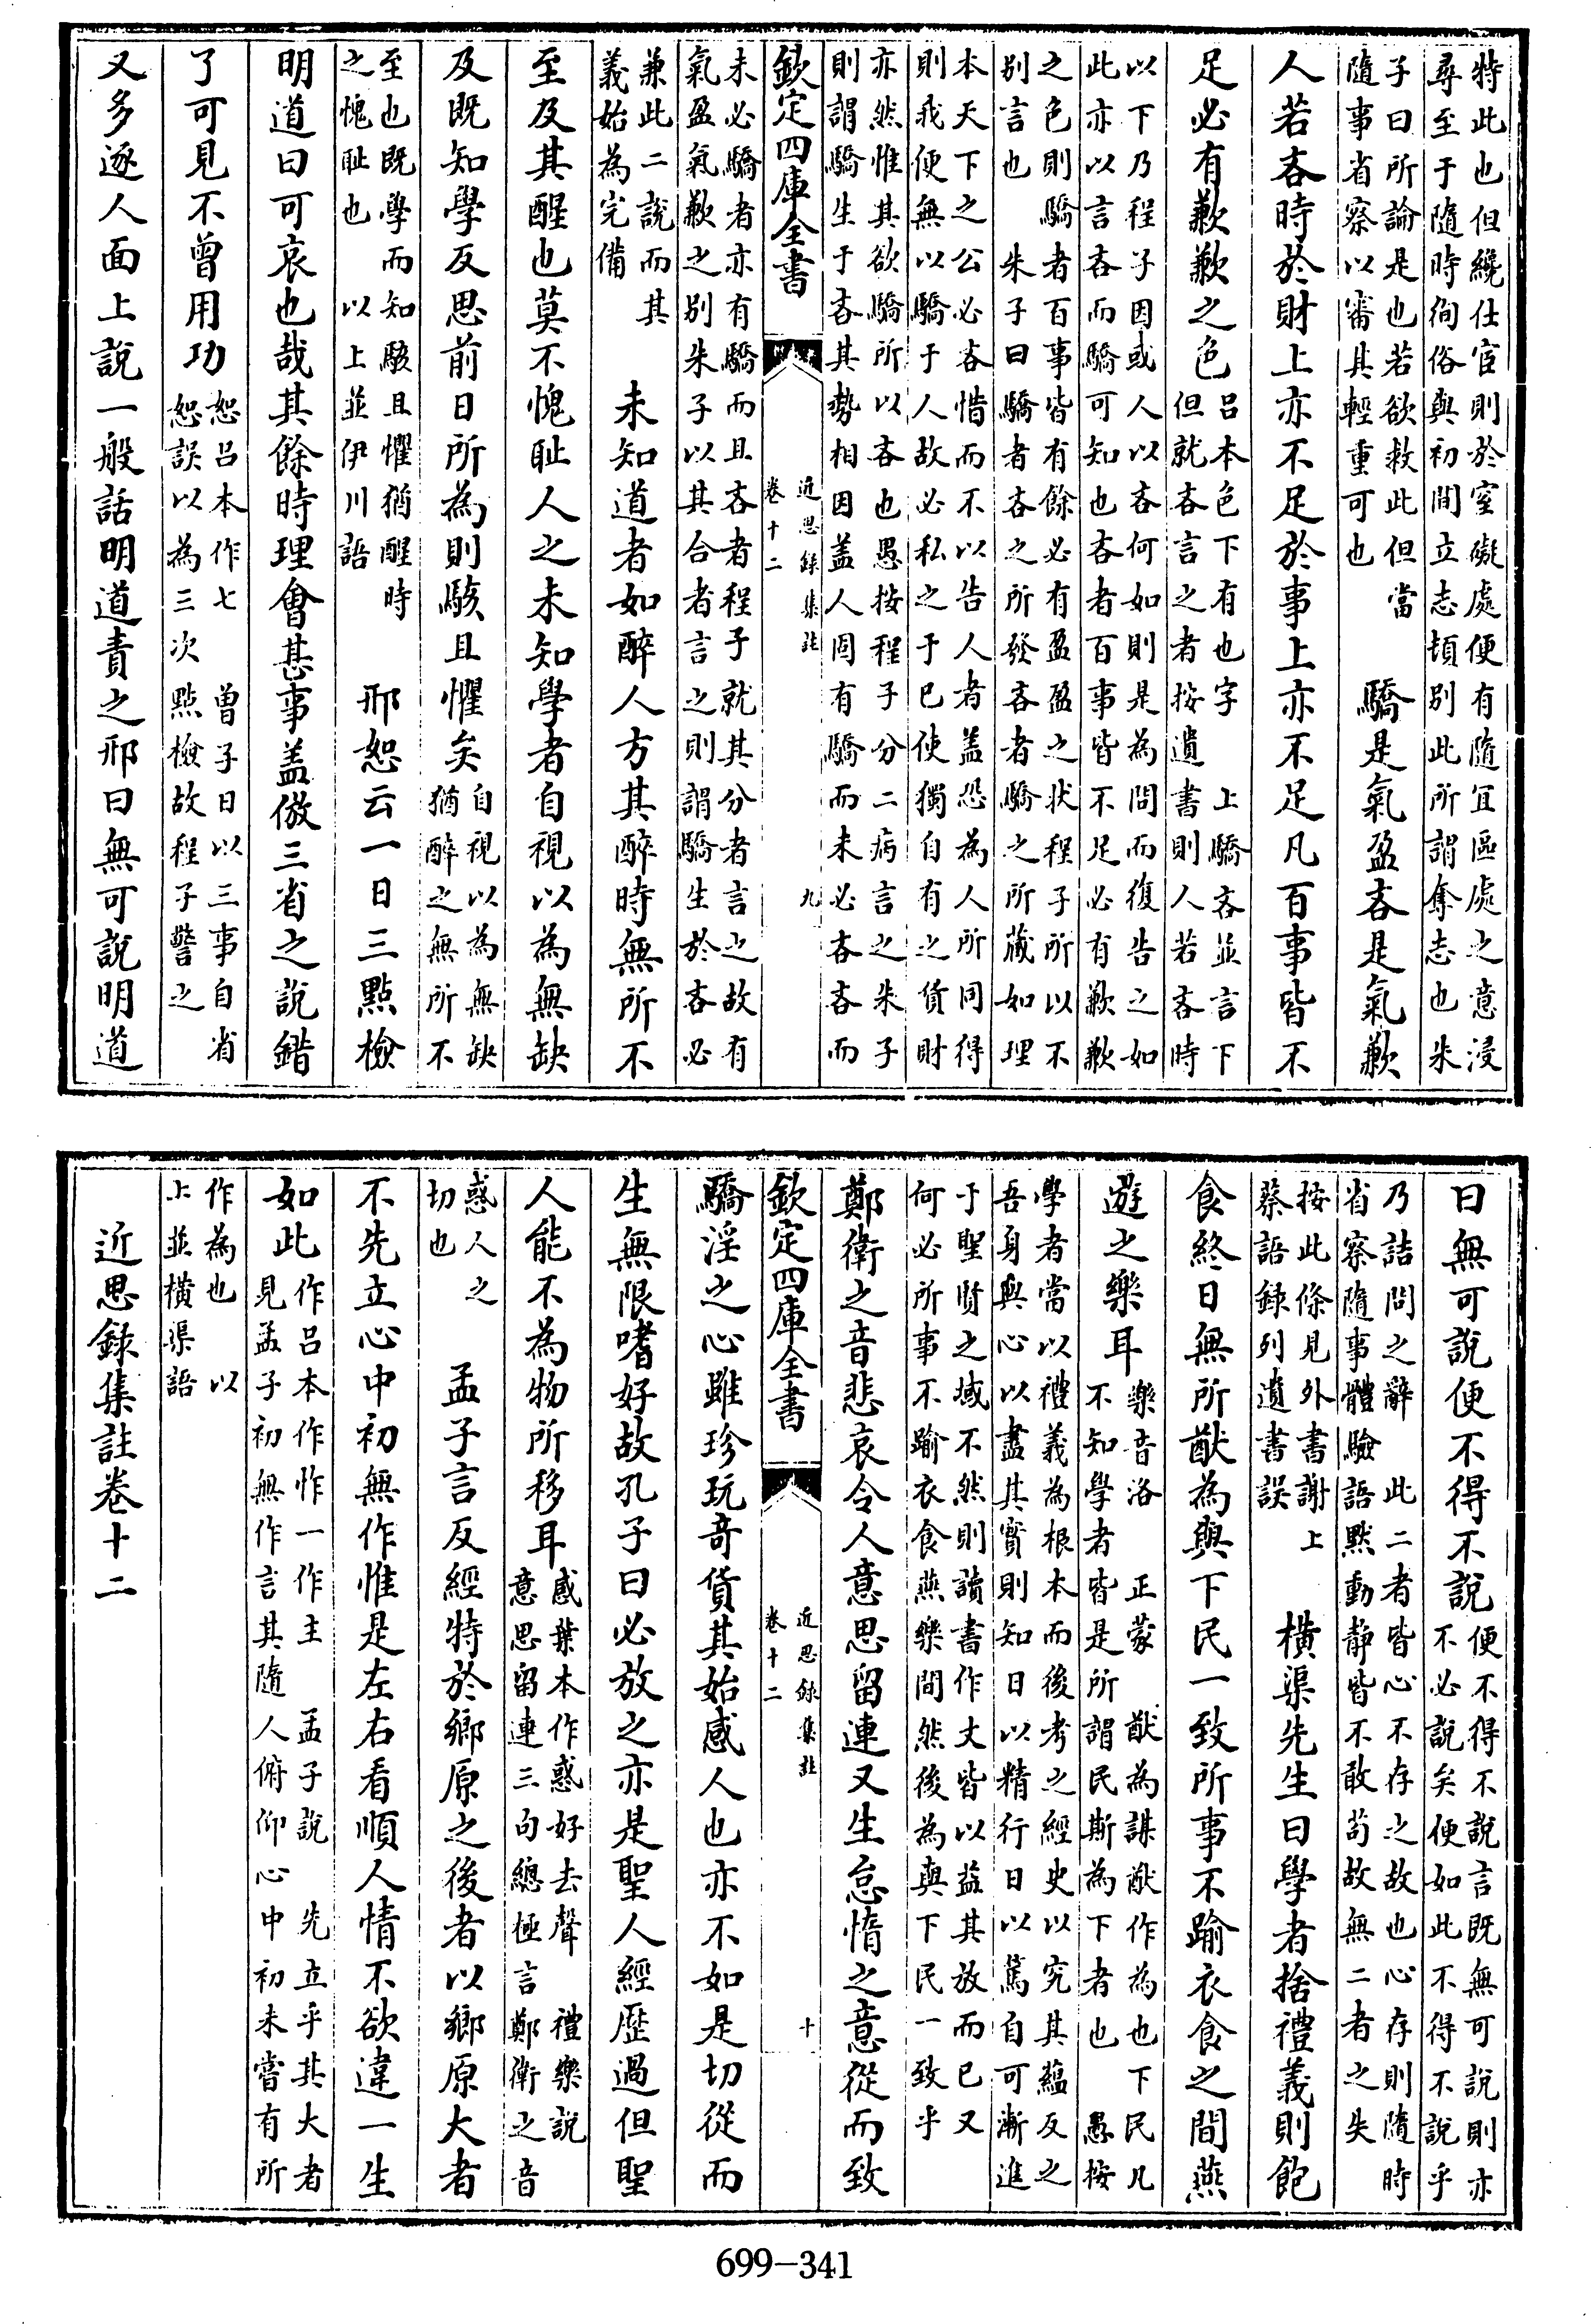 特此也但纔仕宦則於室礙處便有隨宜區處之意浸
尋至于隨時徇俗與初間立志頓別此所謂奪志也朱
子曰所論是也若欲救此但當
隨事省察以審其輕重可也
驕是氣盈吝是氣歉
人若吝時於財上亦不足於事上亦不足凡百事皆不
足必有歉歉之色
呂本色下有也字
但就吝言之者按遺書則人若吝時
上驕吝並言下
以下乃程子因或人以吝何如則是為問而復告之如
此亦以言吝而驕可知也吝者百事皆不足必有歉歉
之色則驕者百事皆有餘必有盈盈之狀程子所以不
別言也
朱子曰驕者吝之所發吝者驕之所藏如理
本天下之公必吝惜而不以告人者蓋恐為人所同得
則我便無以驕于人故必私之于己使獨自有之貨財
亦然惟其欲驕所以吝也愚按程子分二病言之朱子
則謂驕生于吝其勢相因蓋人固有驕而未必吝吝而
欽定四庫全書
近思錄集註
卷十二
九
未必驕者亦有驕而且吝者程子就其分者言之故有
氣盈氣歉之別朱子以其合者言之則謂驕生於吝必
兼此二說而其
義始為完備
未知道者如醉人方其醉時無所不
至及其醒也莫不愧恥人之未知學者自視以為無缺
及既知學反思前日所為則駭且懼矣
自視以為無缺
猶醉之無所不
至也既學而知駭且懼猶醒時
之愧恥也
以上並伊川語
邢恕云一日三點檢
明道曰可哀也哉其餘時理會甚事蓋倣三省之說錯
了可見不曾用功
恕呂本作七
恕誤以為三次點檢故程子警之
曾子日以三事自省
又多逐人面上說一般話明道責之邢曰無可說明道
曰無可說便不得不說
便不得不說言既無可說則亦
不必說矣便如此不得不說乎
乃詰問之辭
此二者皆心不存之故也心存則隨時
省察隨事體驗語默動靜皆不敢苟故無二者之失
按此條見外書謝上
蔡語錄列遺書誤
橫渠先生曰學者捨禮義則飽
食終日無所猷為與下民一致所事不踰衣食之間燕
遊之樂耳
樂音洛
正蒙
猷為謀猷作為也下民凡
不知學者皆是所謂民斯為下者也
愚按
學者當以禮義為根本而後考之經史以究其蘊反之
吾身與心以盡其實則知日以精行日以篤自可漸進
于聖賢之域不然則讀書作文皆以益其放而已又
何必所事不踰衣食燕樂間然後為與下民一致乎
鄭衛之音悲哀令人意思留連又生怠惰之意從而致
欽定四庫全書
近思錄集註
卷十二
十
驕淫之心雖珍玩奇貨其始感人也亦不如是切從而
生無限嗜好故孔子曰必放之亦是聖人經歷過但聖
人能不為物所移耳
感葉本作惑好去聲
意思留連三句總極言鄭衛之音
禮樂說
惑人之
切也
孟子言反經特於鄉原之後者以鄉原大者
不先立心中初無作惟是左右看順人情不欲違一生
如此
作呂本作怍一作主
孟子說
先立乎其大者
見孟子初無作言其隨人俯仰心中初未嘗有所
作為也
以
上並橫渠語
近思錄集註卷十二
699-341